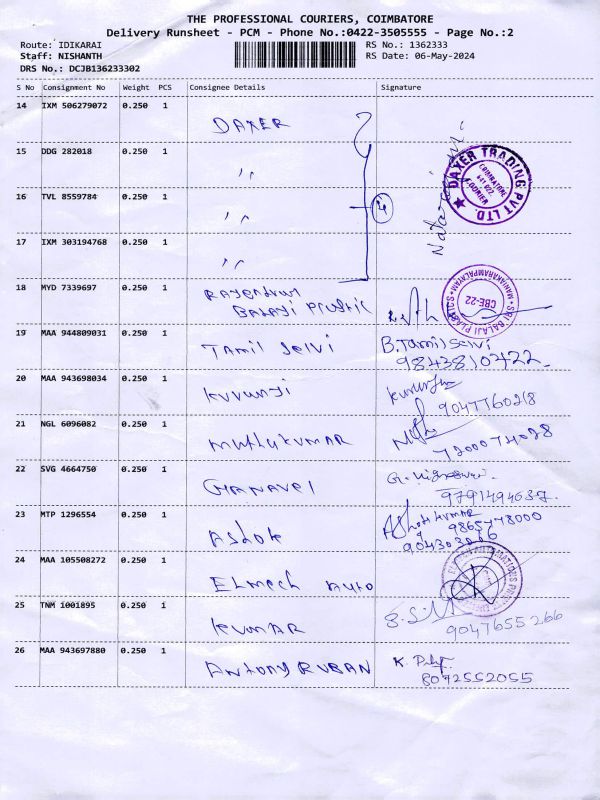 THE PROFESSIONAL COURIERS, COIMBATORE
Delivery Runsheet - PCM - Phone No.:0422-3505555 - Page No.:2
Route: IDIKARAI
RS No.: 1362333
Staff: NISHANTH
RS Date: 06-May-2024
DRS No.: DCJB136233302
S No Consignment No Weight PCS Consignee Details Signature
14 IXM 506279072 0.250 1
DAXER
15 DDG 282018 0.250 1
,,
DAXER TRADING PVT LTD.
COIMBATORE
641 022.
COURIER
16 TVL 8559784 0.250 1
,,
17 IXM 303194768 0.250 1
,,
18 MYD 7339697 0.250 1
Balaji
SRI BALAJI PLASTICS
MANIAKARAMPALAYAM
CBE-22
19 MAA 944809031 0.250 1
Tamil Selvi B.Tamil Selvi
9843810422.
20 MAA 943698034 0.250 1
21 NGL 6096082 0.250 1
Muthukumar
22 SVG 4664750 0.250 1
23 MTP 1296554 0.250 1
Ashok
24 MAA 105508272 0.250 1
Elmech Auto
25 TNM 1001895 0.250 1
Kumar
9047655266
26 MAA 943697880 0.250 1
Antony Ruban
8072552055